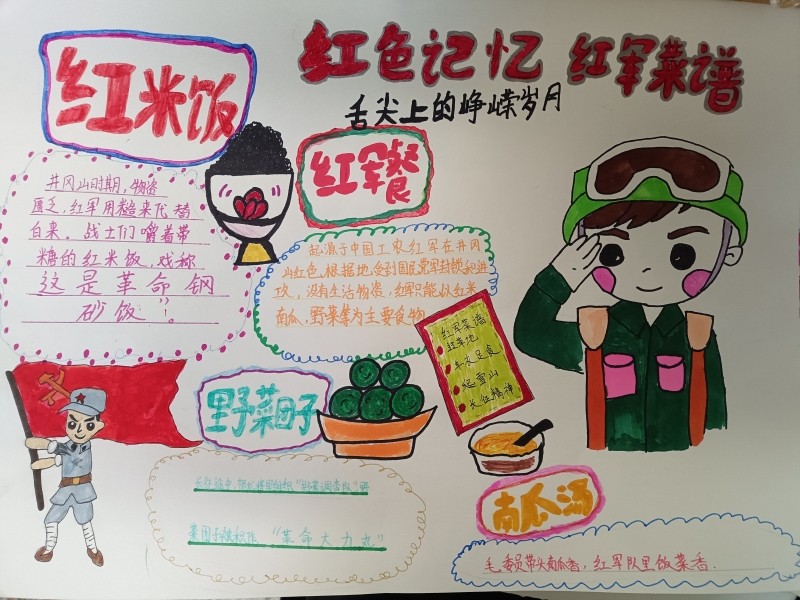 红色记忆 红军菜谱
舌尖上的峥嵘岁月
红米饭
井冈山时期,物资
匮乏,红军用糙米代替
白来。战士们嚼着带
糖的红米饭,戏称
"这是革命钢
砂饭"。
红军餐
起源于中国工农红军在井冈
山红色根据地,受到国民党军封锁和进
攻,没有生活物资,红军只能以红米
南瓜,野菜等为主要食物
红军菜谱
过草地
丰衣足食
爬雪山
长征精神
野菜团子
长征途中,
菜团子 "革命大力丸"
南瓜汤
毛委员带头南瓜香,红军队里饭菜香.